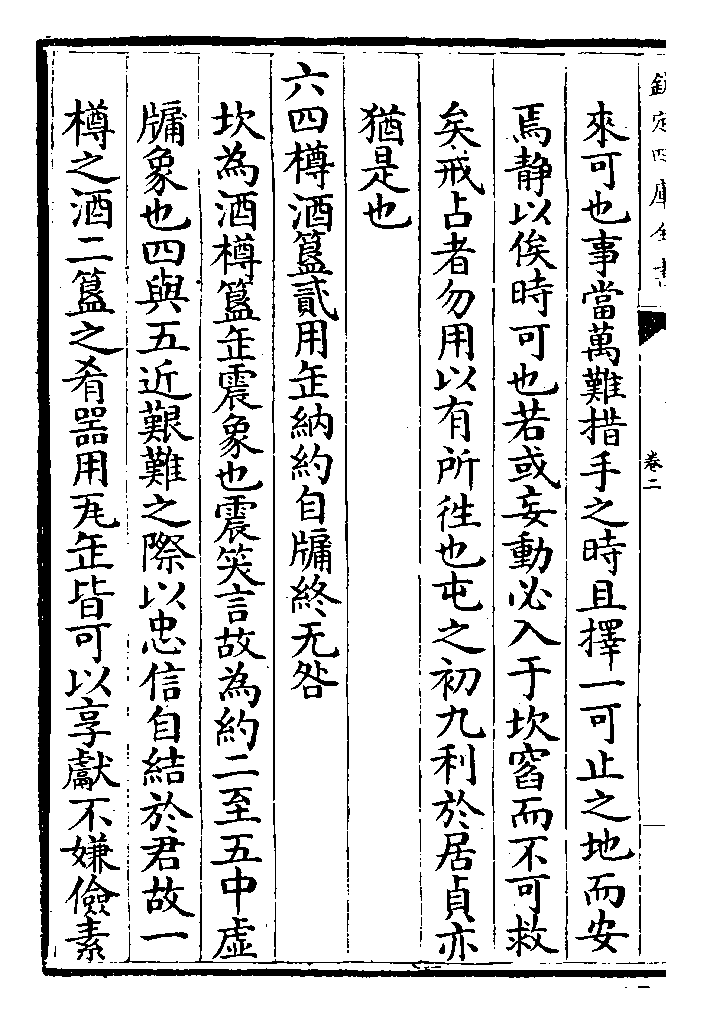 欽定四庫全書
卷二
來可也事當萬難措手之時且擇一可止之地而安
焉静以俟時可也若或妄動必入于坎窞而不可救
矣戒占者勿用以有所徃也屯之初九利於居貞亦
猶是也
六四樽酒簋貳用缶納約自牖終无咎
坎為酒樽簋缶震象也震笑言故為約二至五中虚
牖象也四與五近艱難之際以忠信自結於君故一
樽之酒二簋之肴器用瓦缶皆可以享獻不嫌儉素